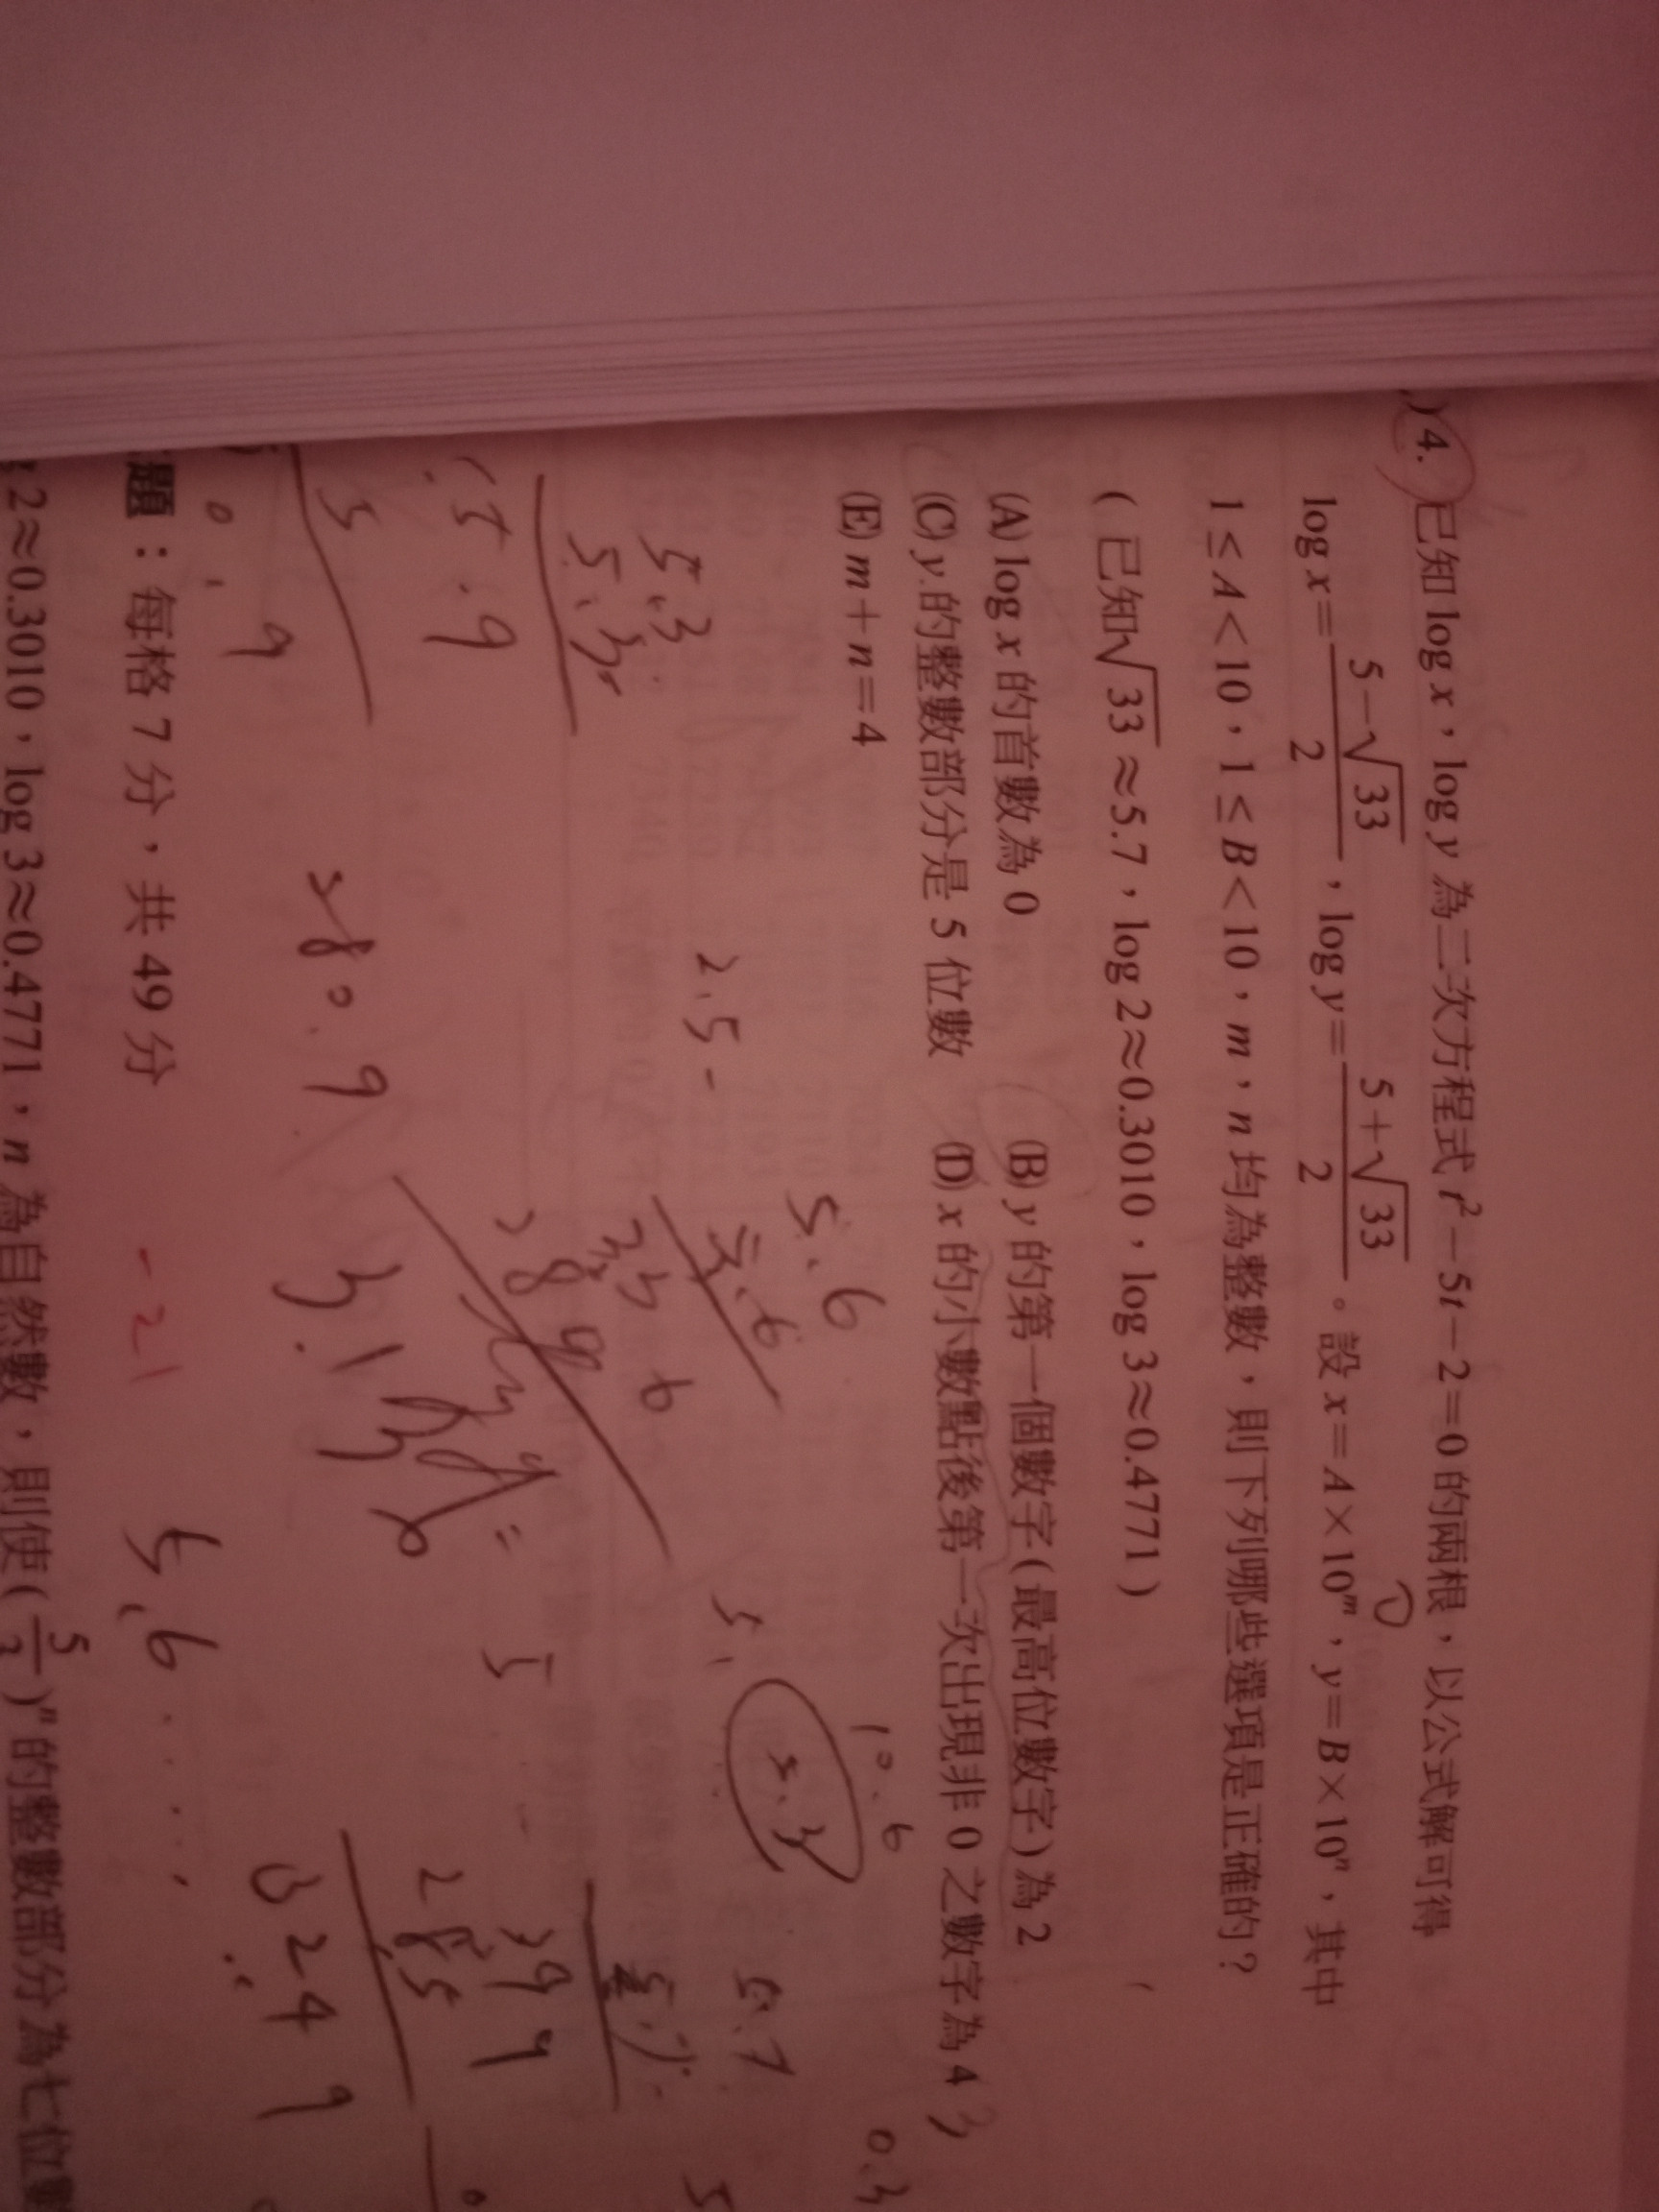 )4. 已知 log x，log y 為二次方程式 t²－5t－2＝0 的兩根，以公式解可得
log x＝\frac{5－√33}{2}，log y＝\frac{5＋√33}{2}。設 x＝A×10ᵐ，y＝B×10ⁿ，其中
1≤A＜10，1≤B＜10，m，n 均為整數，則下列哪些選項是正確的？
(已知√33≈5.7，log 2≈0.3010，log 3≈0.4771)
(A) log x 的首數為 0 (B) y 的第一個數字(最高位數字)為 2
(C) y 的整數部分是 5 位數 (D) x 的小數點後第一次出現非 0 之數字為 4
(E) m＋n＝4
3
0.3
10.6
5.6
5.6
3 3 6
2.5 -
5.3
5.3
5.7
5.7
399
285
3249
15.9
280.9
5.6
-21
題：每格 7 分，共 49 分
2≈0.3010，log 3≈0.4771，n 為自然數，則使(\frac{5}{3})ⁿ的整數部分為七位數